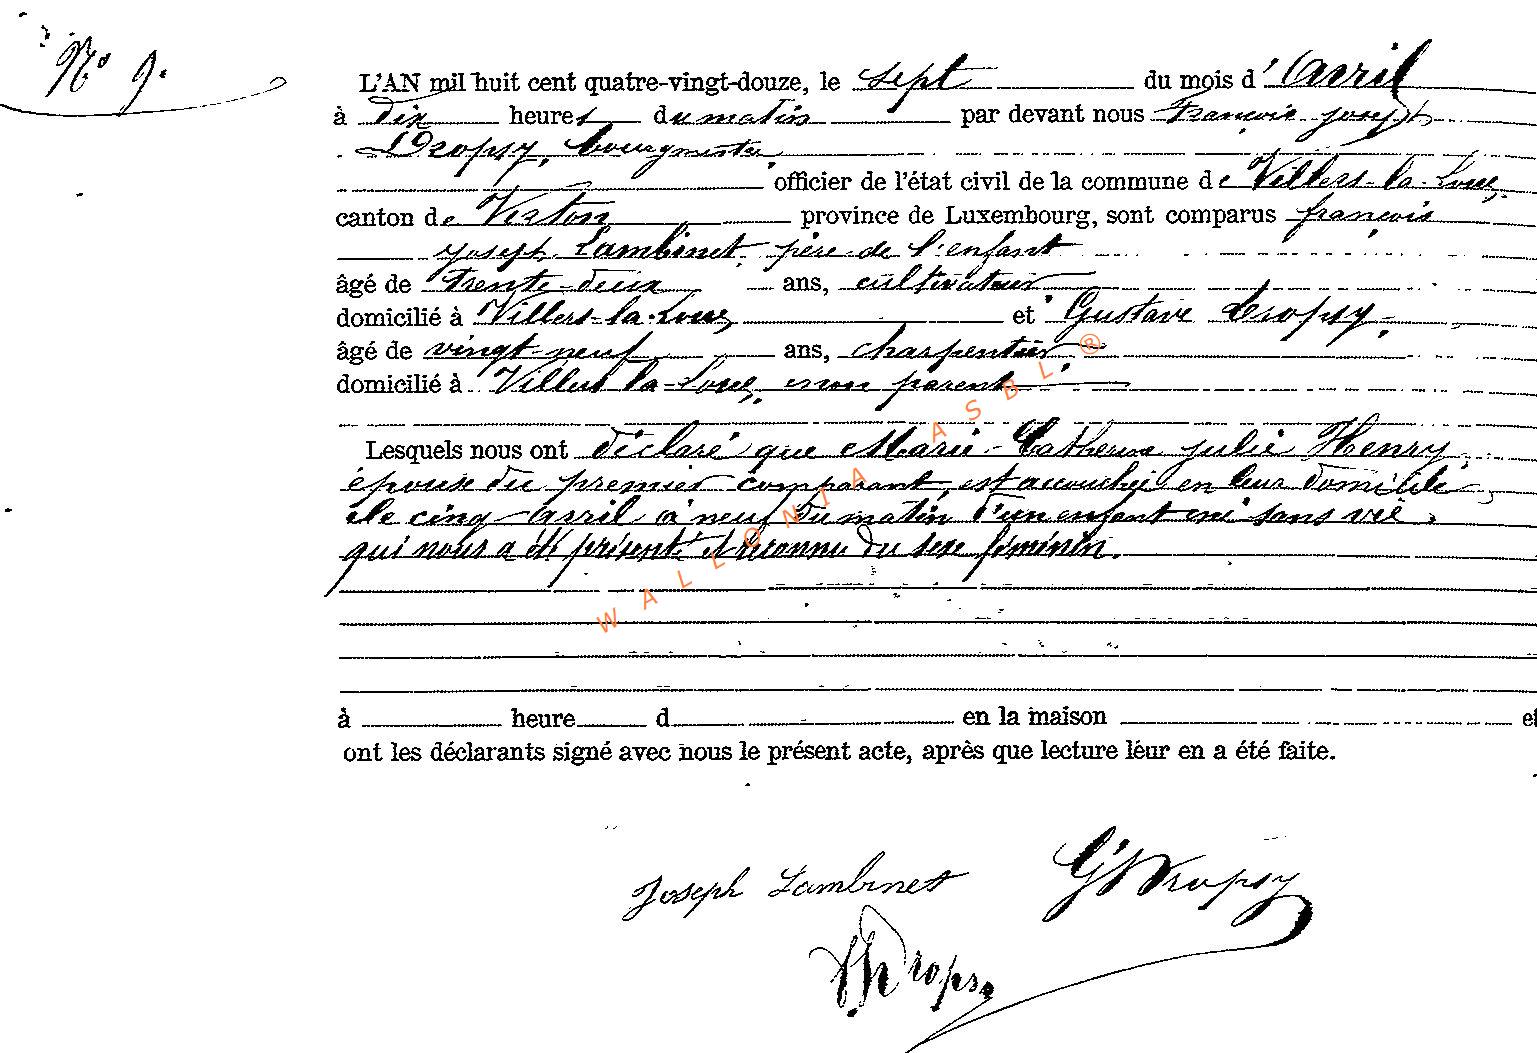 N° 9.
L'AN mil huit cent quatre-vingt-douze, le sept du mois d'Avril
à dix heures du matin par devant nous François joseph
Dropsy, bourgmestre,
officier de l'état civil de la commune de Villers-la-Loue,
canton de Virton province de Luxembourg, sont comparus françois
joseph Lambinet, père de l'enfant
âgé de trente-deux ans, cultivateur
domicilié à Villers-la-Loue, et Gustave Dropsy,
âgé de vingt-neuf ans, charpentier
domicilié à Villers-la-Loue, non parent.
Lesquels nous ont déclaré que Marie-Catherine julie Henry,
épouse du premier comparant, est accouchée en leur domicile
le cinq avril à neuf du matin d'un enfant né sans vie,
qui nous a été présenté et reconnu du sexe féminin.
à heure d en la maison et
ont les déclarants signé avec nous le présent acte, après que lecture leur en a été faite.
Joseph Lambinet G Dropsy
Dropsy
WALLONIA ASBL ®